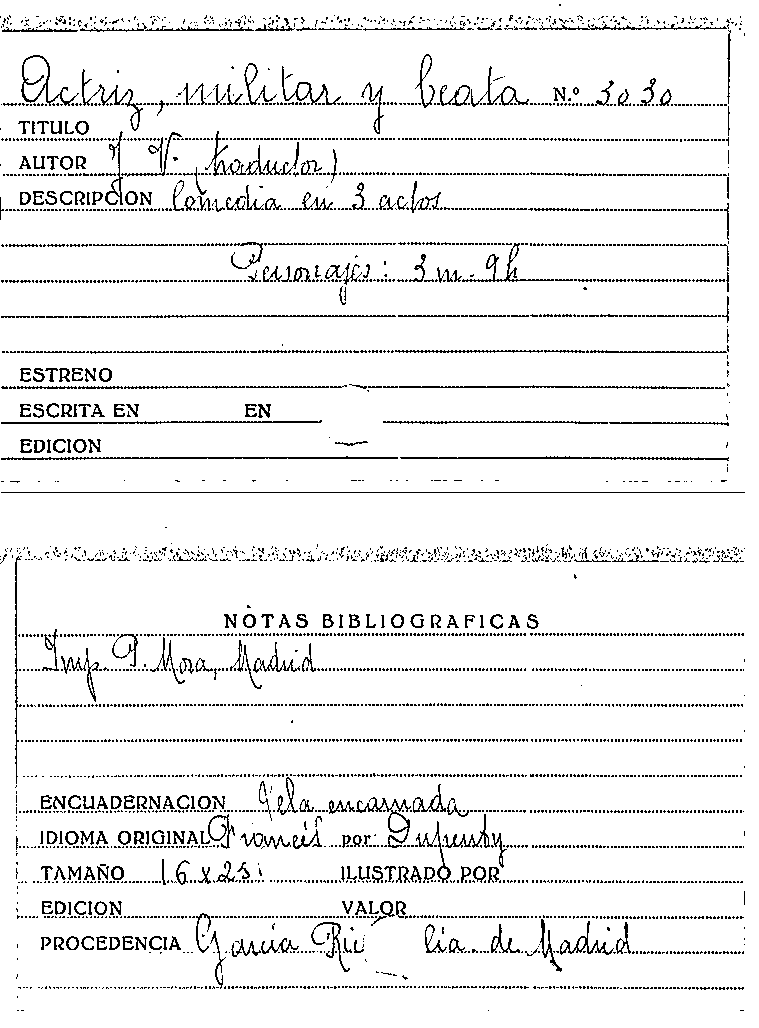 Actriz, militar y beata N.º 3030
TITULO
AUTOR J V. (traductor)
DESCRIPCION Comedia en 3 actos
Personajes: 3 m. 9h
ESTRENO
ESCRITA EN EN
EDICION
NOTAS BIBLIOGRAFICAS
Imp. P. Mora, Madrid
ENCUADERNACION Tela encarnada
IDIOMA ORIGINAL Francés por
TAMAÑO 16 x 23 ILUSTRADO POR
EDICION VALOR
PROCEDENCIA García Ric lia. de Madrid